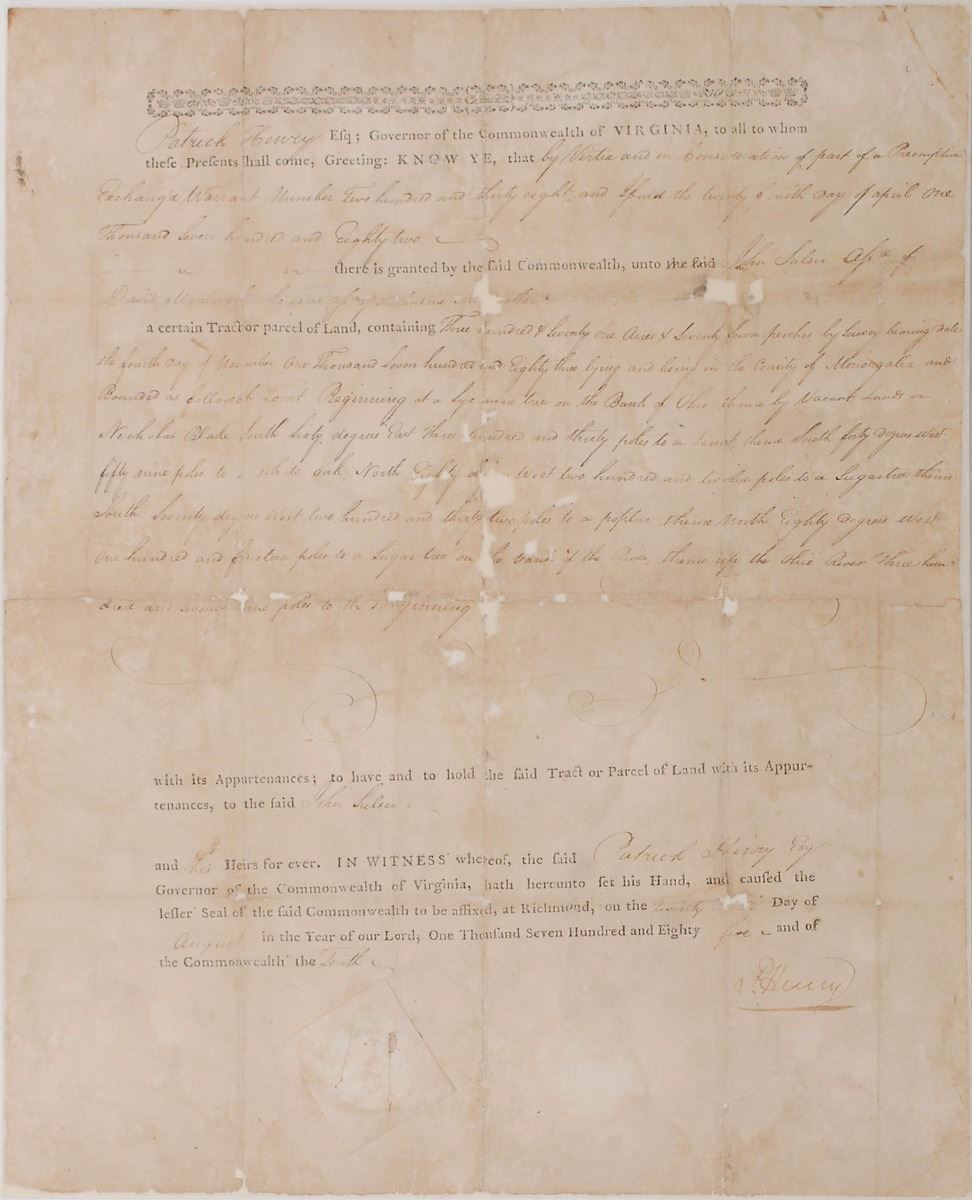 Patrick Henry Esq; Governor of the Commonwealth of VIRGINIA, to all to whom
theſe Preſents ſhall come, Greeting: KNOW YE, that by Virtue and in Consideration of part of a Preemption
Exchang'd Warrant Number Two hundred and thirty eight and Iſsued the twenty fourth Day of april One
Thousand Seven hundred and Eighty two
there is granted by the ſaid Commonwealth, unto the ſaid John Sulser
David
a certain Tract or parcel of Land, containing Three hundred & Seventy one Acres & Seventy Seven perches by Survey bearing date
the fourth Day of November One Thousand Seven hundred and Eighty three lying and being in the County of Monongalia and
Bounded as followeth towit Beginning at a Sycamore tree on the Bank of Ohio thence by Vacant Lands or
Nicholas Blake South Sixty degrees East three hundred and thirty poles to a thence South forty degrees West
fifty nine poles to a white oak North Eighty West two hundred and twelve poles to a Sugartree thence
South Seventy degrees West two hundred and thirty two poles to a poplar thence North Eighty degrees West
One hundred and poles to a Sugar tree on the bank of the River, thence up the Ohio River three hun=
dred and seventy nine poles to the Beginning
with its Appartenances; to have and to hold the ſaid Tract or Parcel of Land with its Appur-
tenances, to the ſaid John Sulser
and his Heirs for ever. IN WITNESS whereof, the ſaid Patrick Henry Esq
Governor of the Commonwealth of Virginia, hath hereunto ſet his Hand, and cauſed the
leſſer Seal of the ſaid Commonwealth to be affixed, at Richmond, on the twenty Day of
August in the Year of our Lord, One Thouſand Seven Hundred and Eighty five and of
the Commonwealth the Tenth
P. Henry